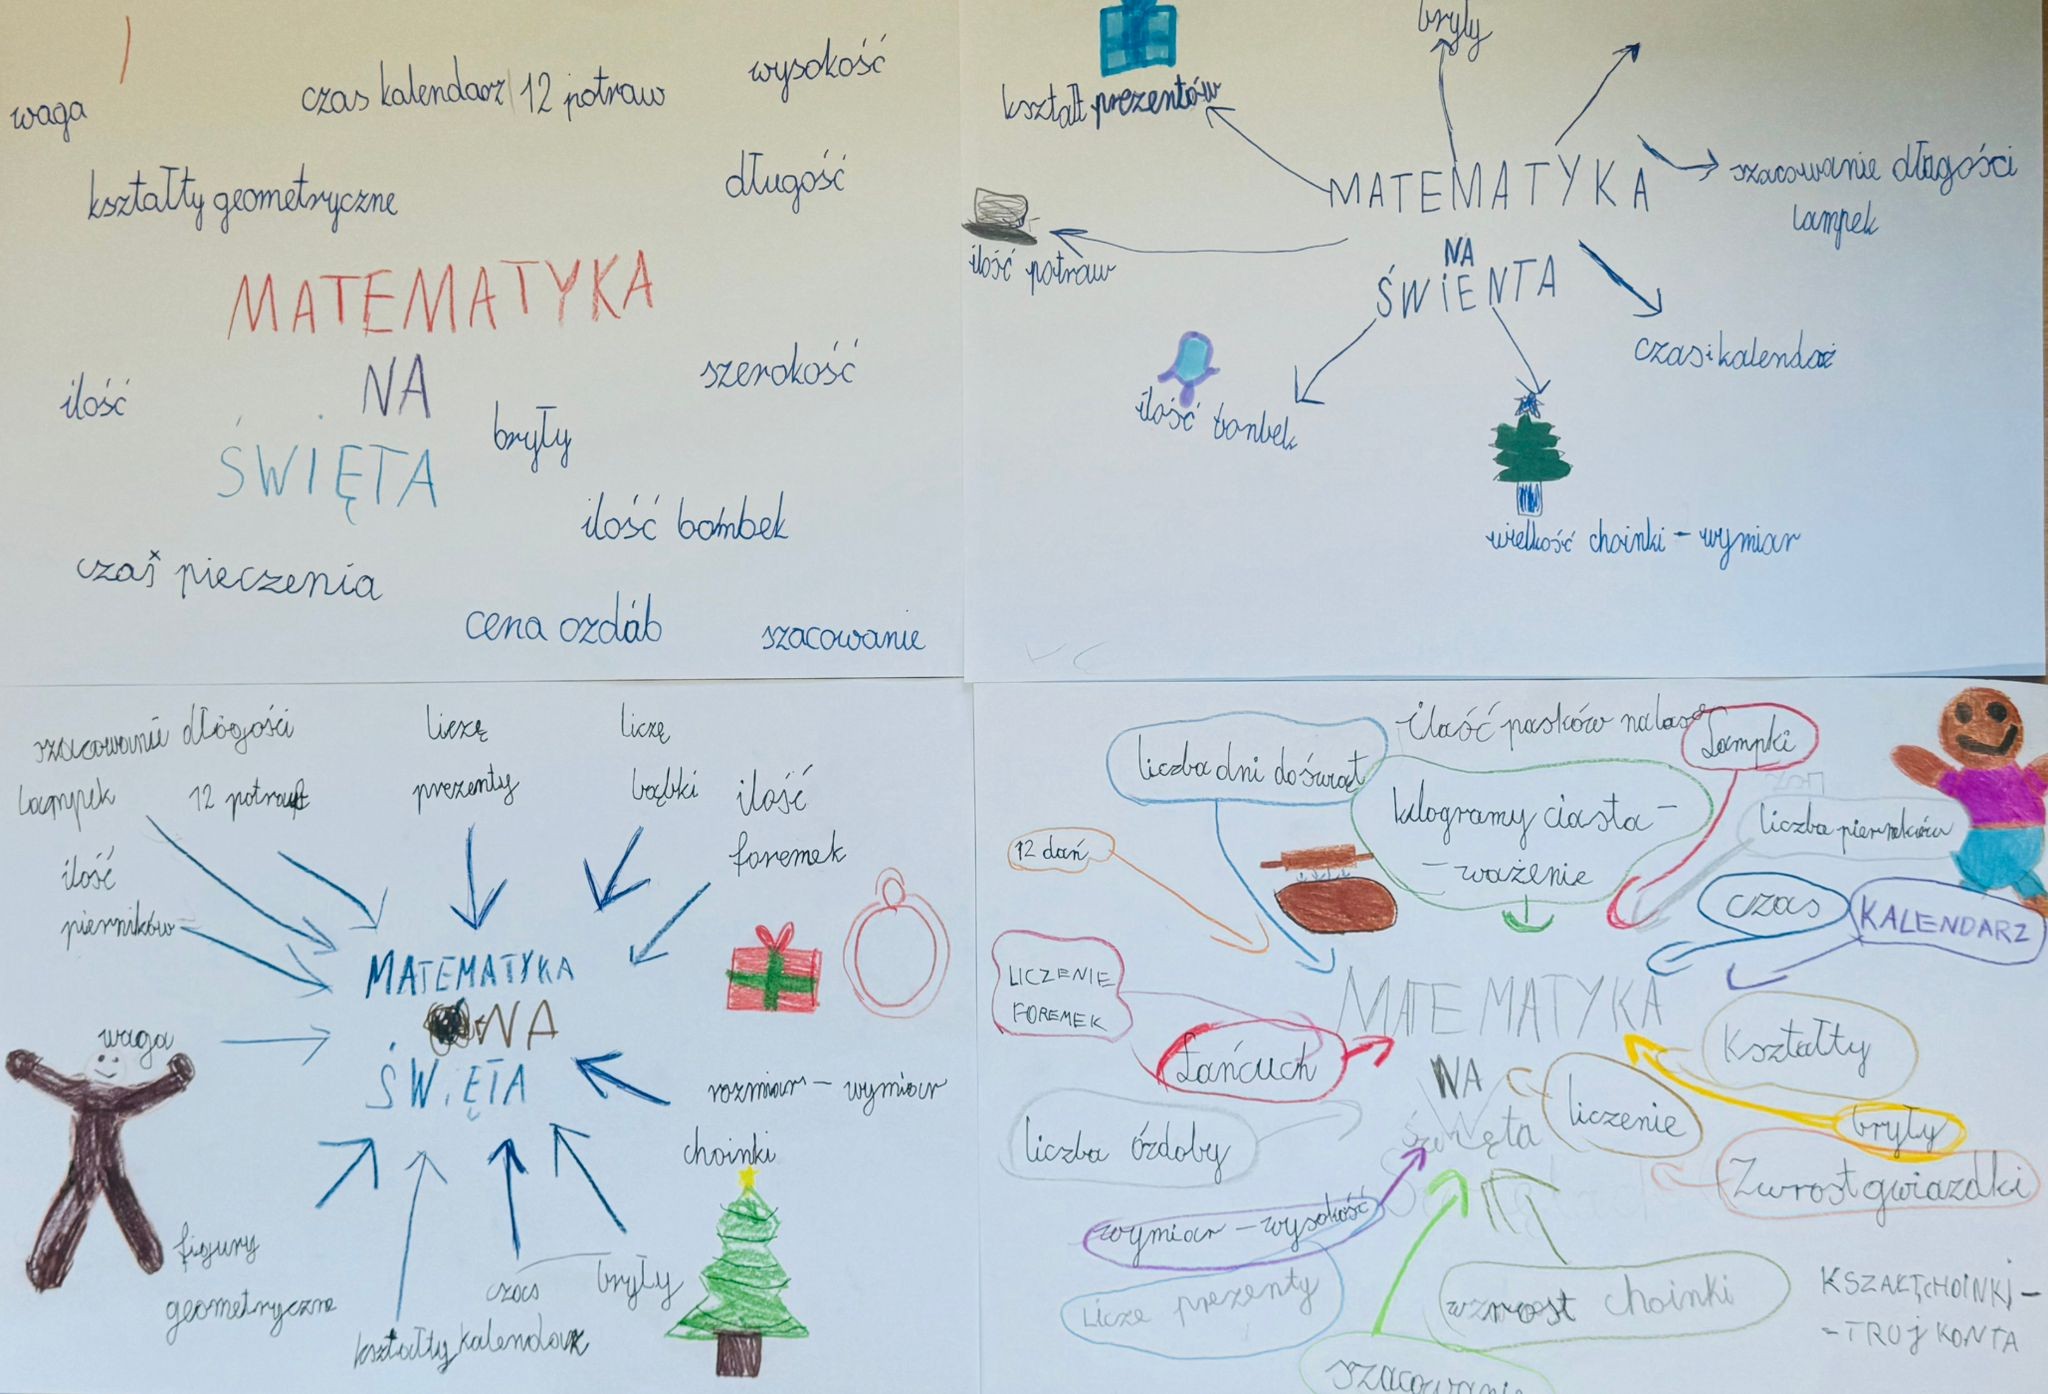 waga
czas kalendarz 12 potraw
wysokość
kształty geometryczne
długość
MATEMATYKA
NA
ŚWIĘTA
ilość
szerokość
bryły
ilość bombek
czas pieczenia
cena ozdób
szacowanie
bryły
kształt prezentów
MATEMATYKA
NA
ŚWIENTA
szacowanie długości
lampek
ilość potraw
czas i kalendaż
ilość bonbek
wielkość choinki - wymiar
szacowanie długości
lampek
12 potraw
liczę
prezenty
liczę
bąbki
ilość
foremek
ilość
pierników
MATEMATYKA
NA
ŚWIĘTA
waga
rozmiar - wymiar
choinki
figury
geometryczne
kształty
czas
kalendarz
bryły
liczba dni do świąt
ilość pasków na
Lampki
12 dań
kilogramy ciasta -
- ważenie
liczba pierników
czas
KALENDARZ
LICZENIE
FOREMEK
MATEMATYKA
NA
Święta
Łańcuch
Kształty
liczenie
bryły
liczba ózdoby
Zwrost gwiazdki
wymiar - wysokość
Licze prezenty
wzrost choinki
KSZAŁT CHOINKI -
- TRUJKONTA
szacowanie